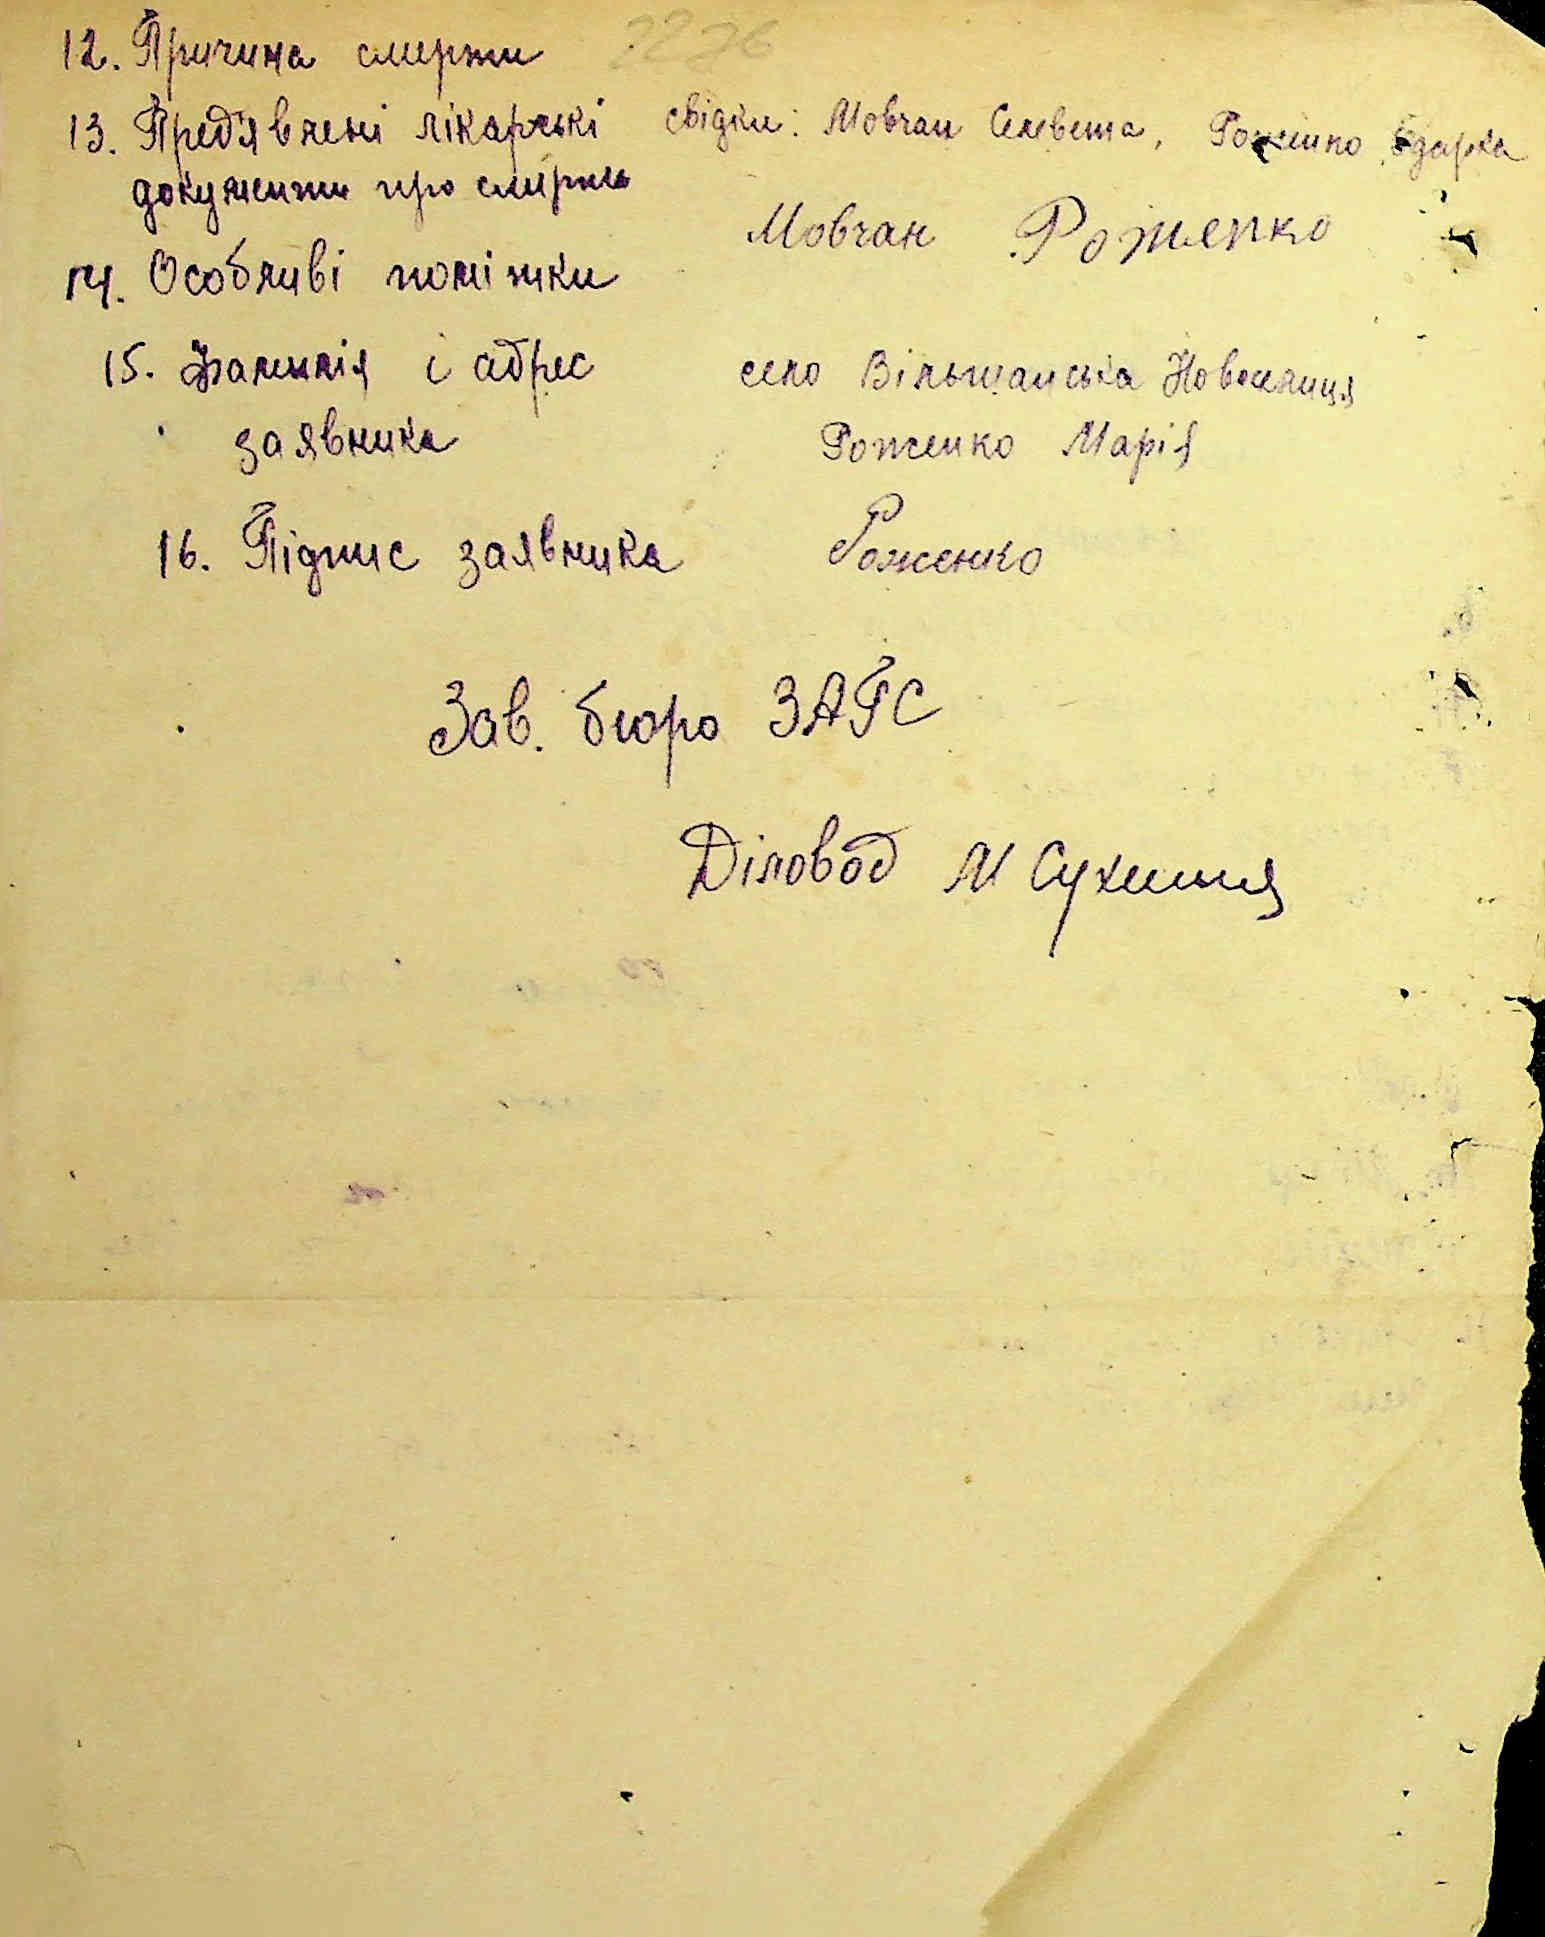 2276
12. Причина смерти
13. Пред'явлені лікарські свідки: Мовчан Селвеша, Роженко Одарка
документи про смерть
Мовчан Роженко
14. Особливі помітки
15. Фамилія і адрес село Вільшанська Новоселиця
заявника Роженко Марія
16. Підпис заявника Роженко
Зав. бюро ЗАГС
Діловод М Сухиня